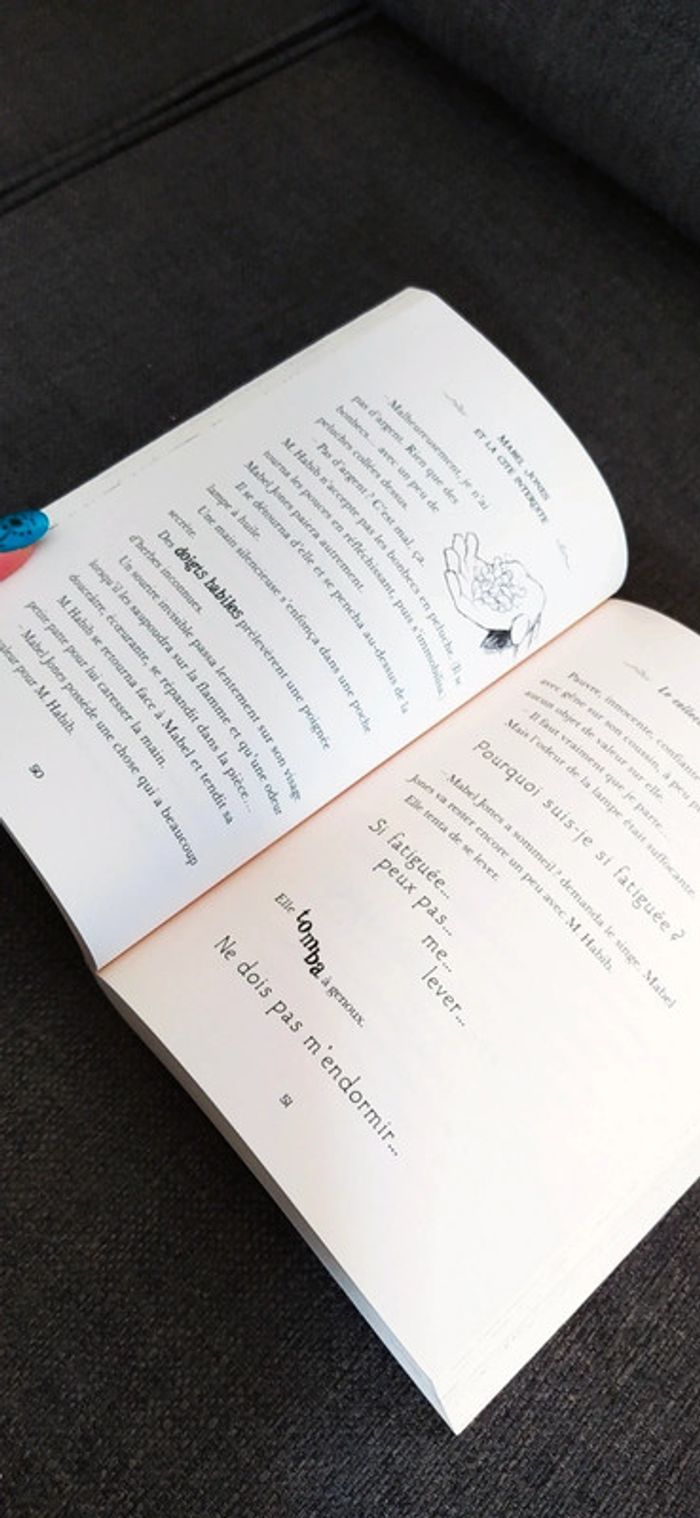 MABEL JONES
ET LA CITÉ INTERDITE
– Malheureusement, je n'ai
pas d'argent. Rien que des
bonbecs... avec un peu de
peluches collées dessus.
– Pas d'argent ? C'est mal, ça.
M. Habib n'accepte pas les bonbecs en peluche. Il se
tourna les pouces en réfléchissant, puis s'immobilisa.
Mabel Jones paiera autrement.
Il se détourna d'elle et se pencha au-dessus de la
lampe à huile.
Une main silencieuse s'enfonça dans une poche
secrète.
Des doigts habiles prélevèrent une poignée
d'herbes inconnues.
Un sourire invisible passa lentement sur son visage
lorsqu'il les saupoudra sur la flamme et qu'une odeur
douceâtre, écœurante, se répandit dans la pièce...
M. Habib se retourna face à Mabel et tendit sa
petite patte pour lui caresser la main.
– Mabel Jones possède une chose qui a beaucoup
pour M. Habib.
50
Pauvre, innocente, confiante
avec gêne sur son coussin, à peu
aucun objet de valeur sur elle.
– Il faut vraiment que je parte...
Mais l'odeur de la lampe était suffocante.
Pourquoi suis-je si fatiguée ?
– Mabel Jones a sommeil ? demanda le singe. Mabel
Jones va rester encore un peu avec M. Habib.
Elle tenta de se lever.
Si fatiguée...
peux pas...
me...
lever...
Elle tomba à genoux.
Ne dois pas m'endormir...
51